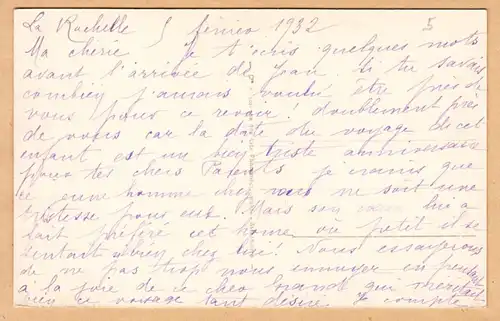 La Rochelle 5 février 1932 5
Ma chérie je t'écris quelques mots
avant l'arrivée de Jean. Si tu savais
combien j'aurais voulu être près de
vous pour ce revoir! doublement près
de vous car la date du voyage de cet
enfant est un bien triste anniversaire
pour tes chers Parents je crains que
ce jeune homme chez vous ne soit une
tristesse pour eux. Mais son lui a
fait préféré cet home où petit il se
sentait si bien chez lui! Nous essayerons
de ne pas trop nous ennuyer en pensant
à la joie de ce cher Grand qui méritait
bien ce voyage tant désiré. Je compte